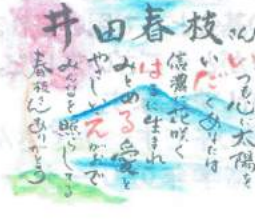 井田春枝さん
いつも心に太陽を
いだくあなたは
信濃に花咲く
はるに生まれ
みとめる愛と
やさしいえがおで
みんなを照らしてる
春枝さんありがとう